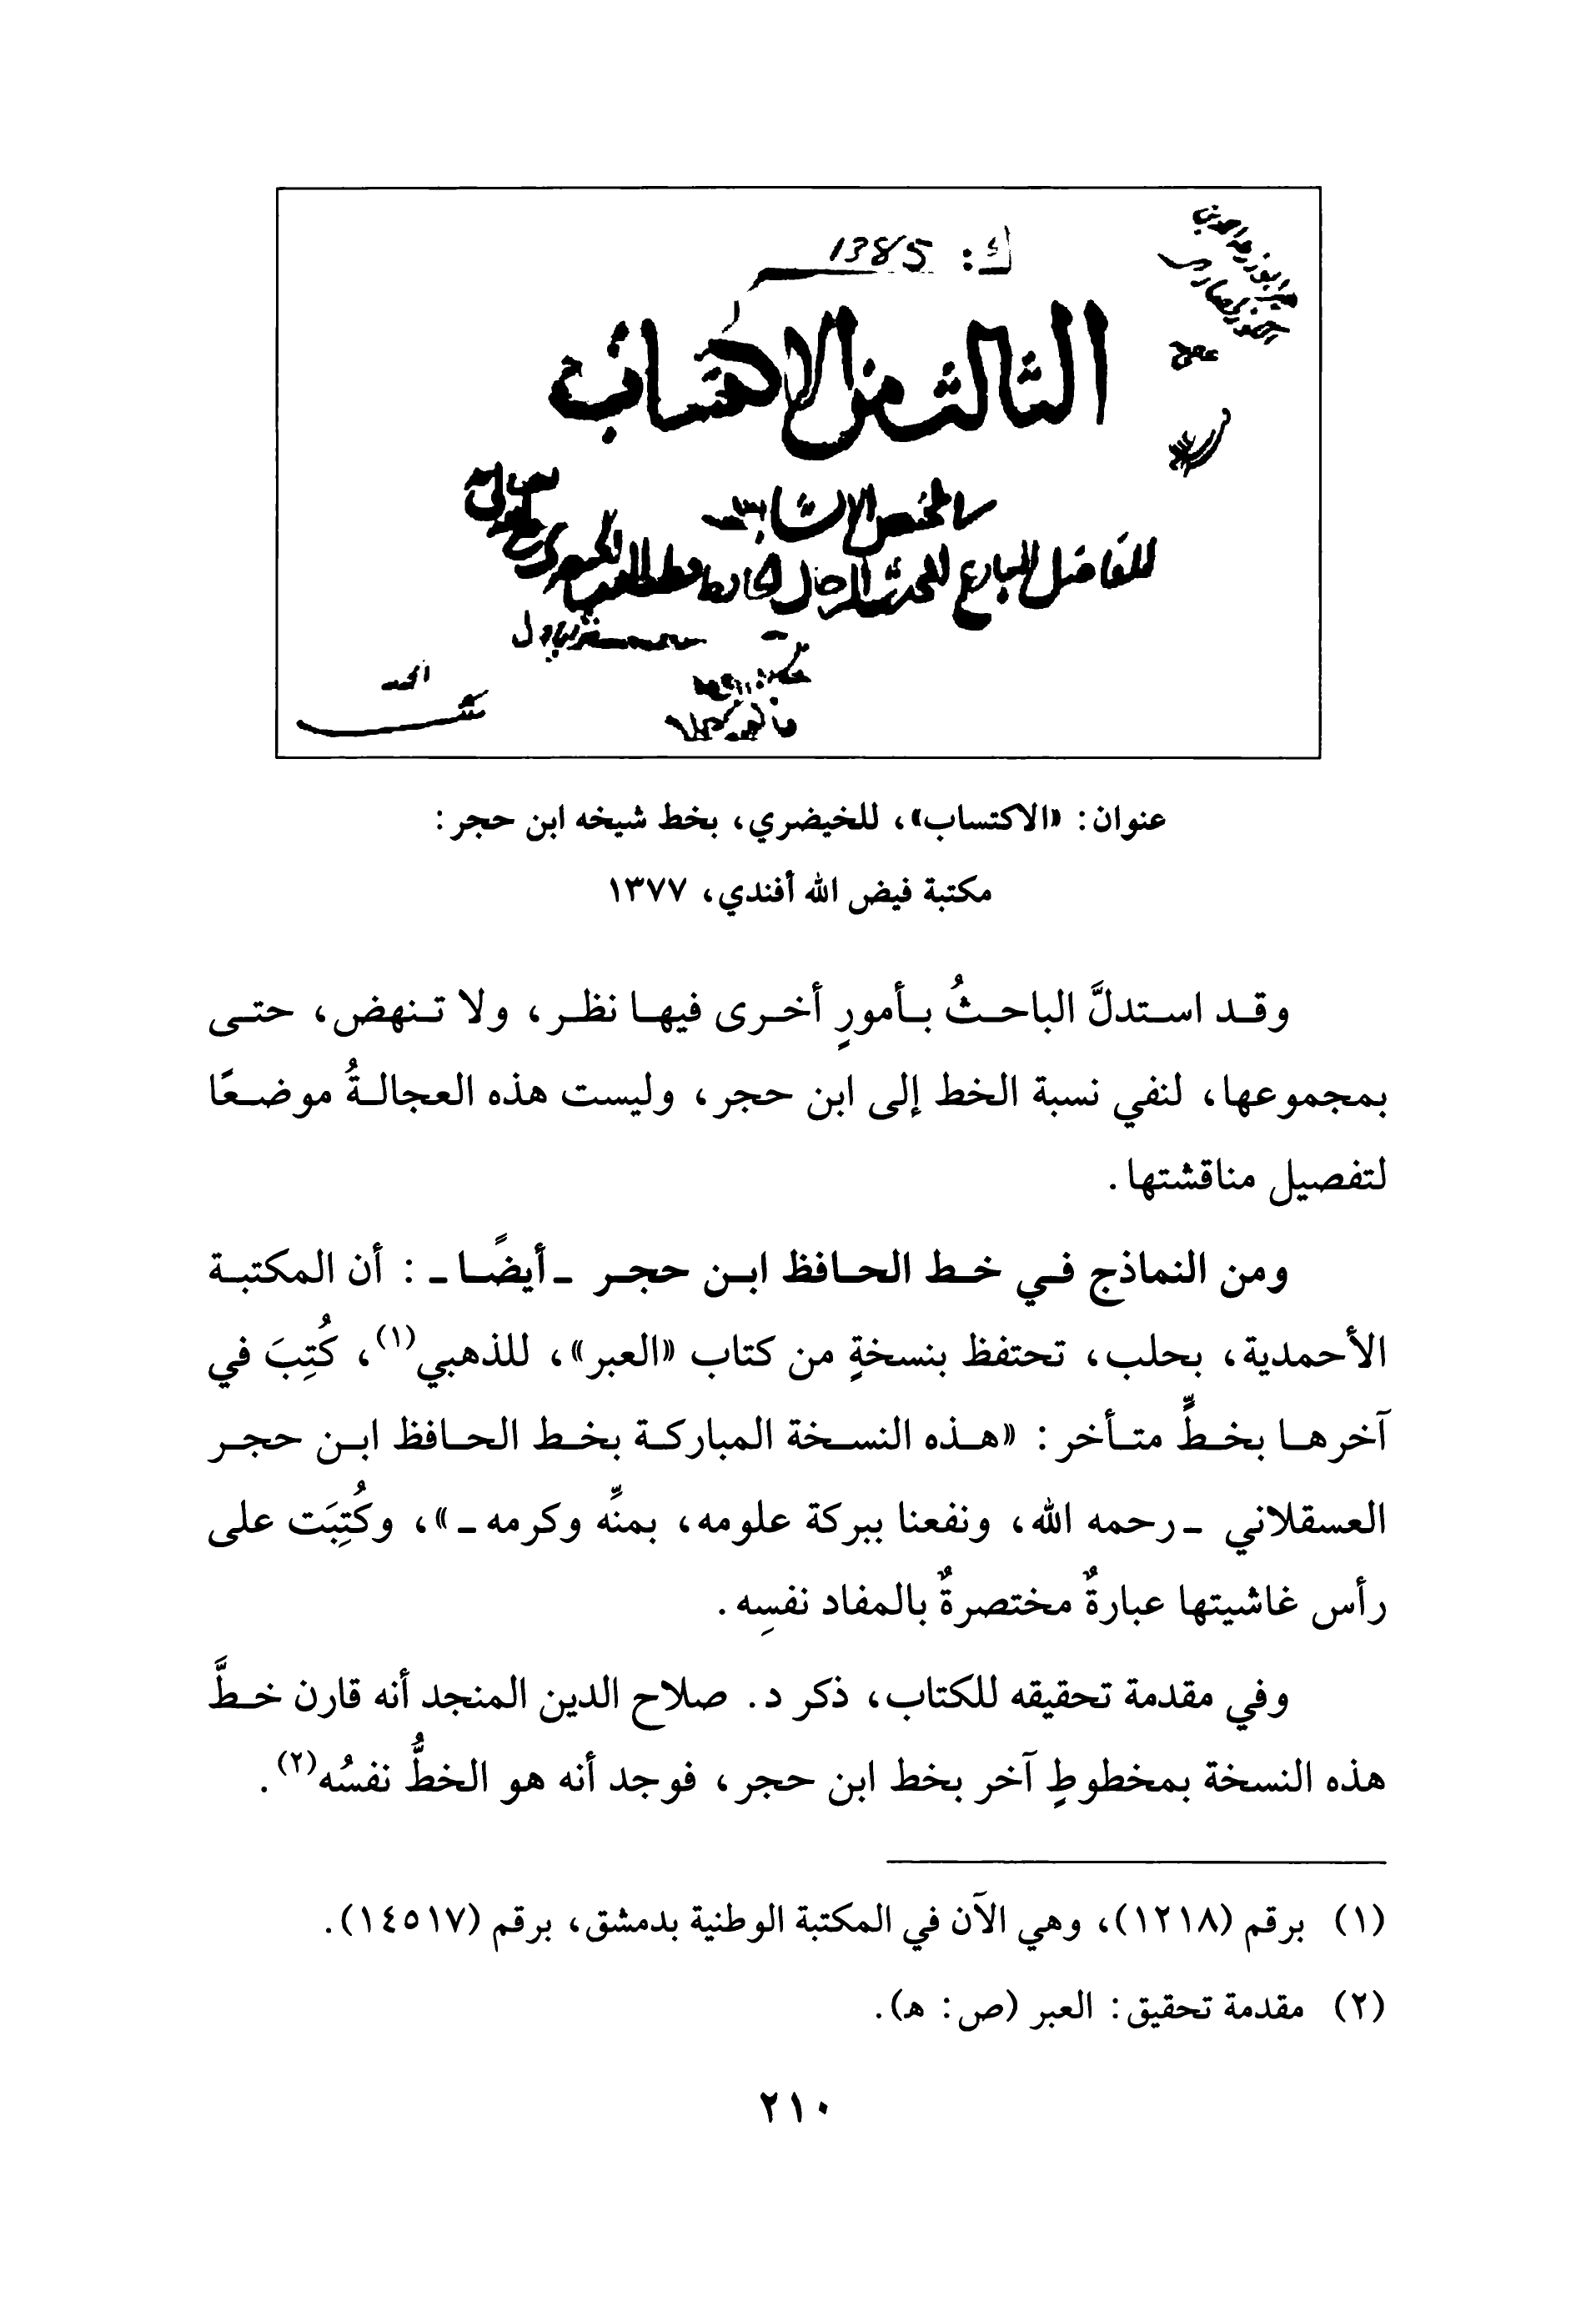 ك: 1385
الثالث من الاكتساب
في تلخيص الانساب
للفاضل البارع المحدث الرحال الحافظ قطب الدين الخيضري
الحمد
عنوان: «الاكتساب»، للخيضري، بخط شيخه ابن حجر:
مكتبة فيض الله أفندي، ١٣٧٧
وقد استدلَّ الباحثُ بأمورٍ أخرى فيها نظر، ولا تنهض، حتى
بمجموعها، لنفي نسبة الخط إلى ابن حجر، وليست هذه العجالةُ موضعًا
لتفصيل مناقشتها.
ومن النماذج في خط الحافظ ابن حجر -أيضًا-: أن المكتبة
الأحمدية، بحلب، تحتفظ بنسخةٍ من كتاب «العبر»، للذهبي(١)، كُتِبَ في
آخرها بخطٍّ متأخر: «هذه النسخة المباركة بخط الحافظ ابن حجر
العسقلاني -رحمه الله، ونفعنا ببركة علومه، بمنِّه وكرمه-»، وكُتِبَت على
رأس غاشيتها عبارةٌ مختصرةٌ بالمفاد نفسِه.
وفي مقدمة تحقيقه للكتاب، ذكر د. صلاح الدين المنجد أنه قارن خطَّ
هذه النسخة بمخطوطٍ آخر بخط ابن حجر، فوجد أنه هو الخطُّ نفسُه(٢).
(١) برقم (١٢١٨)، وهي الآن في المكتبة الوطنية بدمشق، برقم (١٤٥١٧).
(٢) مقدمة تحقيق: العبر (ص: هـ).
٢١٠